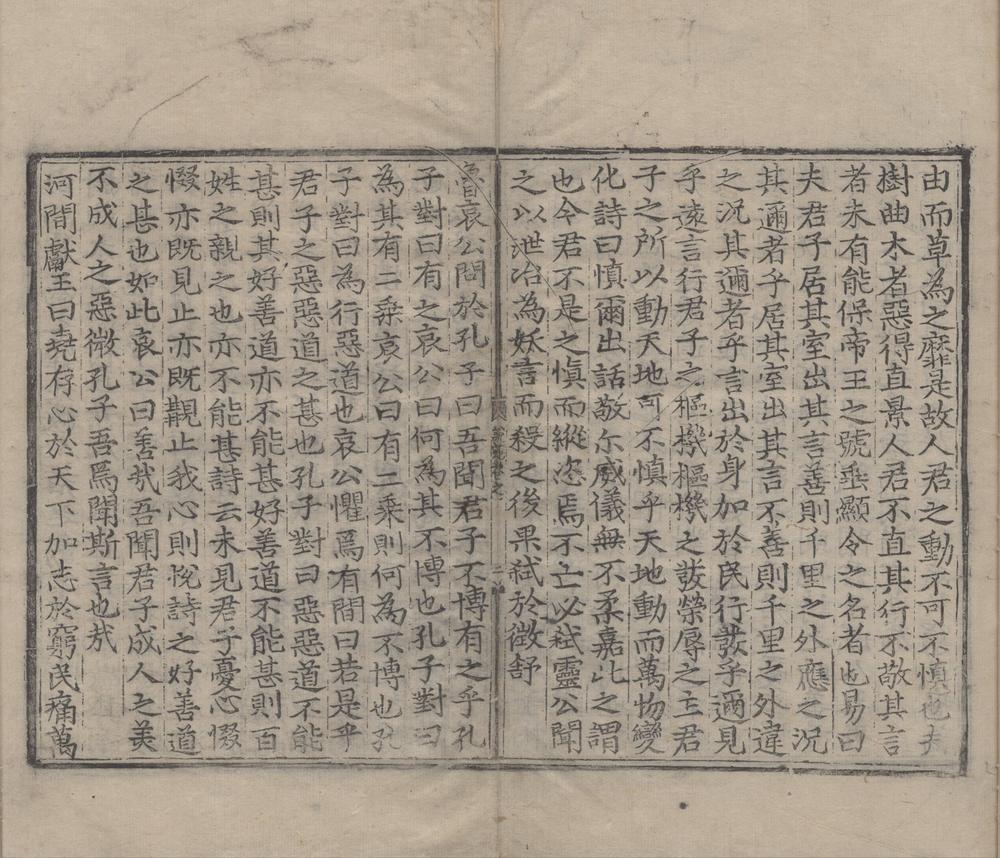 由而草為之靡是故人君之動不可不慎也夫
樹曲木者惡得直景人君不直其行不敬其言
者未有能保帝王之號垂顯令之名者也易曰
夫君子居其室出其言善則千里之外應之況
其邇者乎居其室出其言不善則千里之外違
之況其邇者乎言出於身加於民行發乎邇見
乎遠言行君子之樞機樞機之發榮辱之主君
子之所以動天地可不慎乎天地動而萬物變
化詩曰慎爾出話敬尒威儀無不柔嘉此之謂
也今君不是之慎而縱恣焉不亡必弒靈公聞
之以泄冶為妖言而殺之後果弒於徵舒
魯哀公問於孔子曰吾聞君子不博有之乎孔
子對曰有之哀公曰何為其不博也孔子對曰
為其有二乗哀公曰有二乗則何為不博也孔
子對曰為行惡道也哀公懼焉有間曰若是乎
君子之惡惡道之甚也孔子對曰惡惡道不能
甚則其好善道亦不能甚好善道不能甚則百
姓之親之也亦不能甚詩云未見君子憂心惙
惙亦既見止亦既覯止我心則悅詩之好善道
之甚也如此哀公曰善哉吾聞君子成人之美
不成人之惡微孔子吾焉聞斯言也哉
河間獻王曰堯存心於天下加志於窮民痛萬